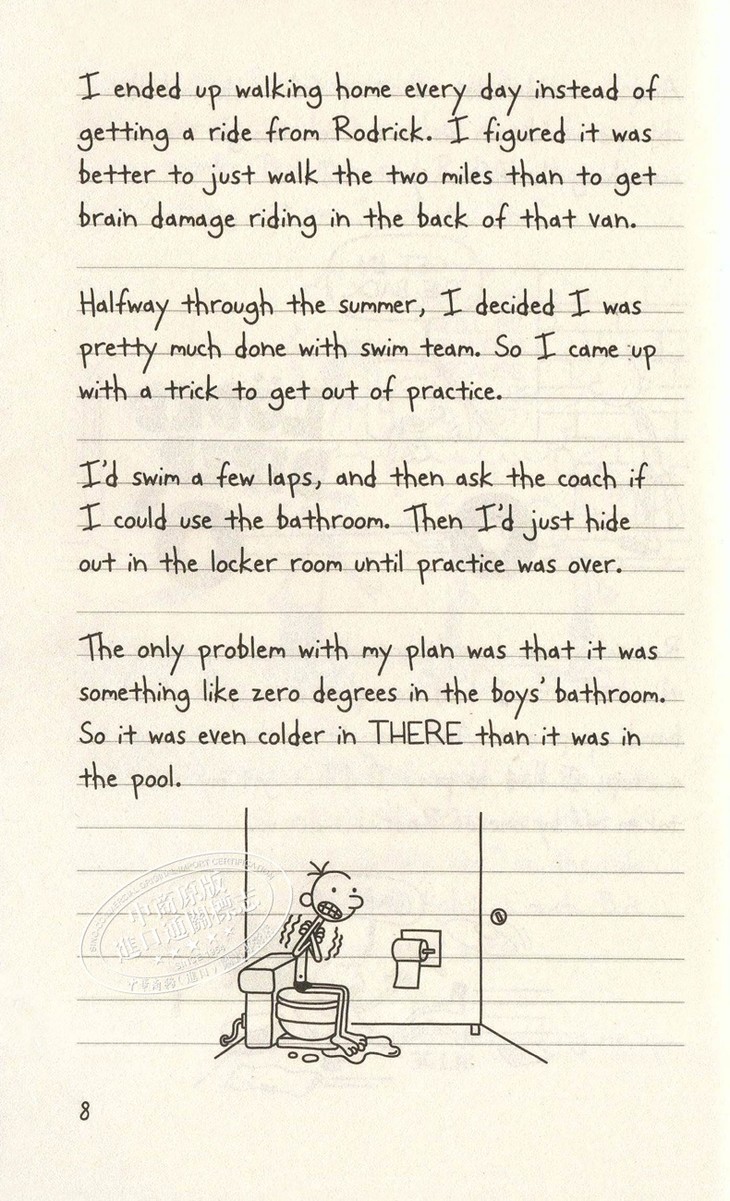 I ended up walking home every day instead of
getting a ride from Rodrick. I figured it was
better to just walk the two miles than to get
brain damage riding in the back of that van.
Halfway through the summer, I decided I was
pretty much done with swim team. So I came up
with a trick to get out of practice.
I'd swim a few laps, and then ask the coach if
I could use the bathroom. Then I'd just hide
out in the locker room until practice was over.
The only problem with my plan was that it was
something like zero degrees in the boys' bathroom.
So it was even colder in THERE than it was in
the pool.
8